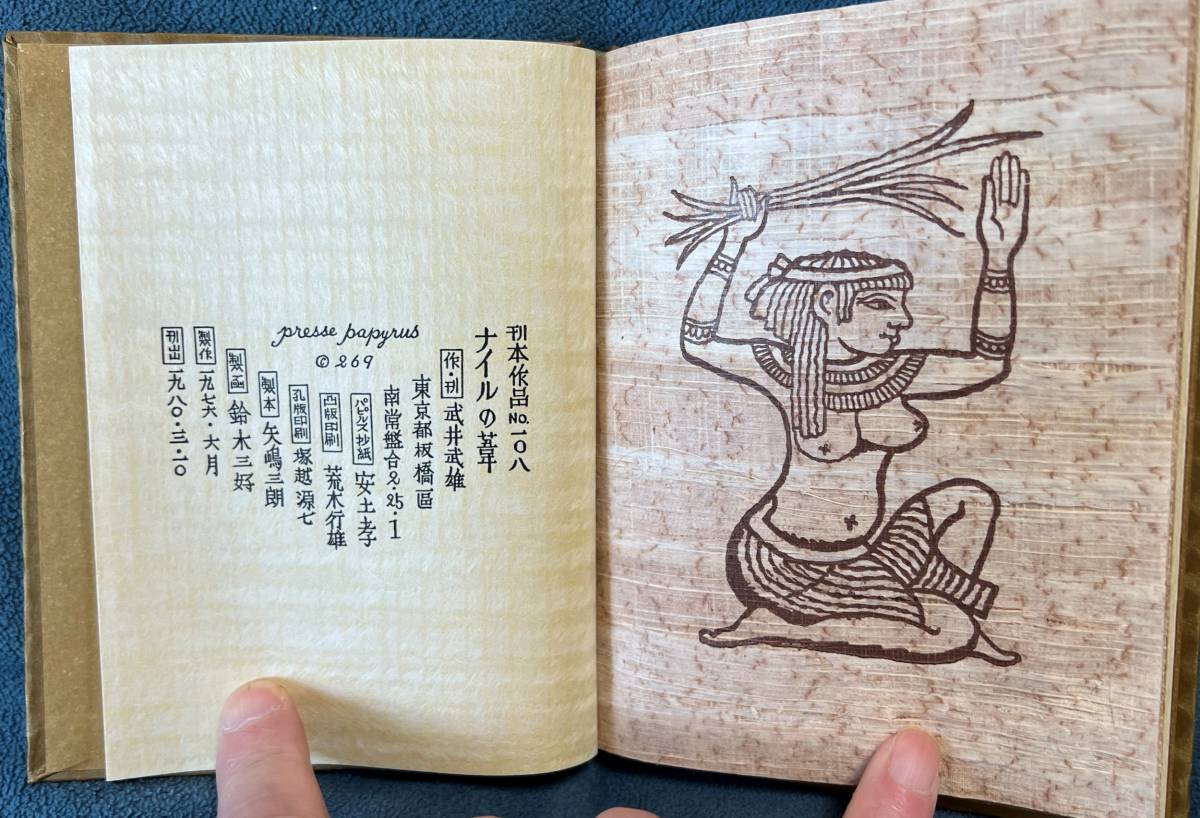 刊本作品 No.一〇八
ナイルの葦
作・刊 武井武雄
東京都板橋區
南常盤台2・25・1
パピルス抄紙 安土孝
凸版印刷 荒木行雄
孔版印刷 塚越源七
製本 矢嶋三朗
製函 鈴木三好
製作 一九七六・六月
刊出 一九八〇・三・一〇
presse papyrus
© 269